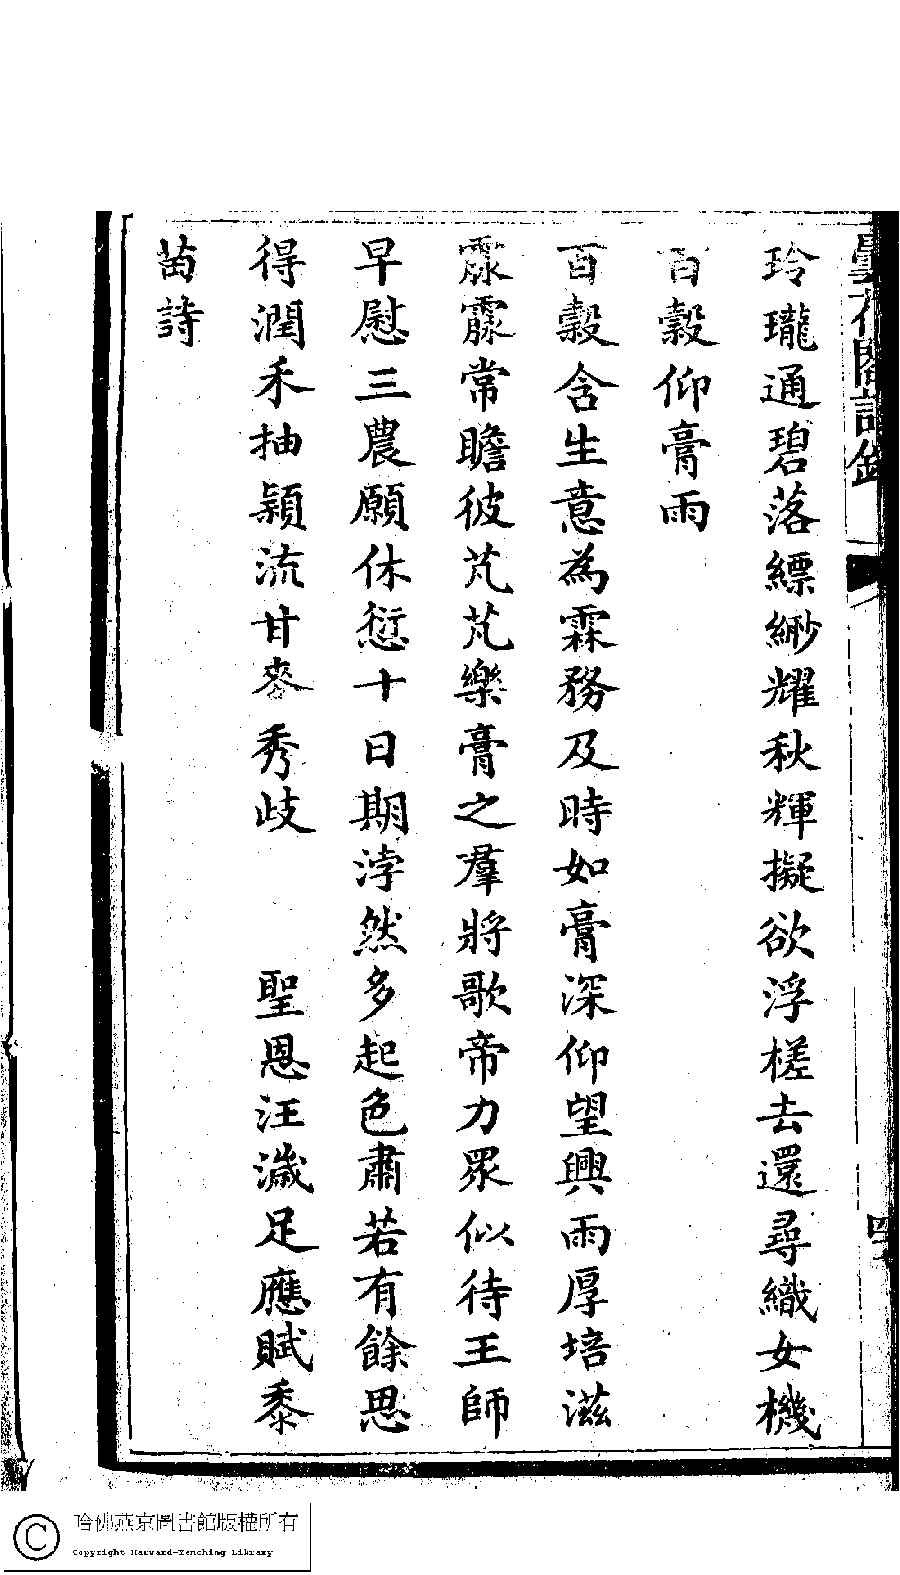 曇花閣詩鈔
四
玲瓏通碧落縹緲耀秋輝擬欲浮槎去還尋織女機
百穀仰膏雨
百穀含生意為霖務及時如膏深仰望興雨厚培滋
霢霂常瞻彼芃芃樂膏之羣將歌帝力眾似待王師
早慰三農願休愆十日期浡然多起色肅若有餘思
得潤禾抽穎流甘麥秀歧 聖恩汪濊足應賦黍
苗詩
哈佛燕京圖書館版權所有
Copyright Harvard-Yenching Library